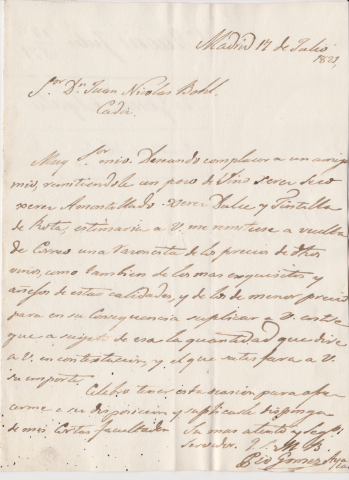 Madrid 14 de Julio
182
Sor. Dn. Juan Nicolas Bohl.
Cadiz.
Muy Sor. mio. Deseando complacer a un amigo
mio, remitiendole un poco de Vino Xerez seco
xerez Amontillado, Xerez Dulce y Tintilla
de Rota, estimaria a V. me remitiese a vuelta
de Correo una razon esta de los precios de dhos
vinos, como tambien de los mas exquisitos y
añejos de estas calidades, y de los de menor precio
para en su consequencia suplicar a V. entre
que a sugeto de esa la quantidad que dire
a V. en contestacion, y el que satisfara a V.
su importe.
Celebro tener esta ocasion para ofre
cerme a su disposicion y suplicarle disponga
de mis cortas facultades Su mas atento y Sego.
Servidor. Q. S. M. B.
Pio Gomez